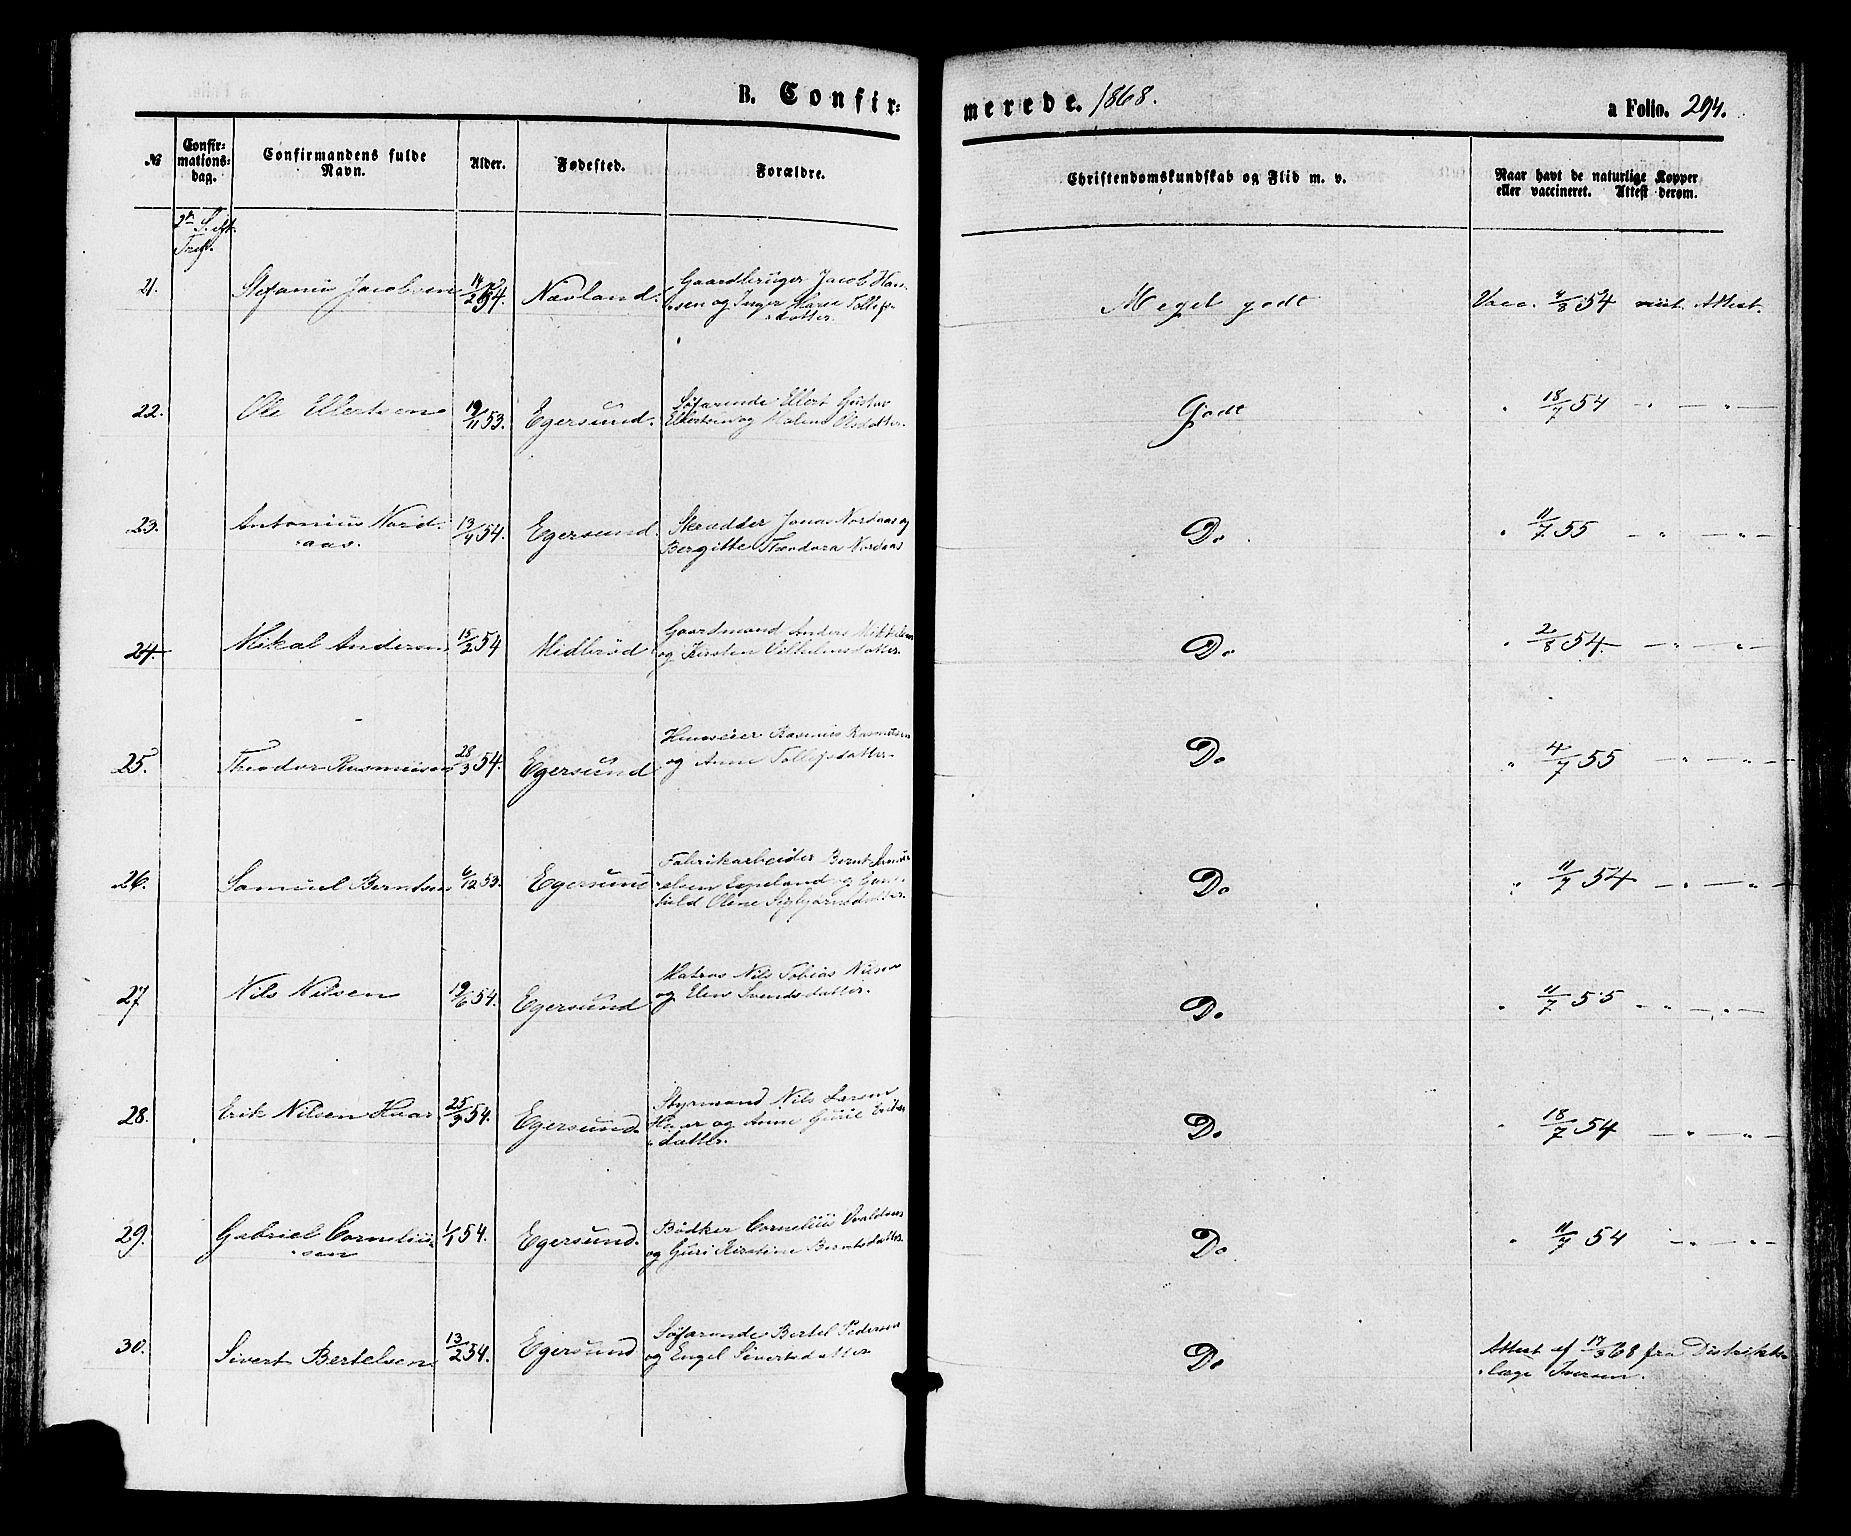 B. Confir-
merede. 1868.
a Folio. 294.
№
Confir-
mations-
dag.
Confirmandens fulde
Navn.
Alder.
Fødested.
Forældre.
Christendomskundskab og Flid m. v.
Naar havt de naturlige Kopper
eller vaccineret. Attest derom.
S. eft.
21. Stefanus Jacobsen 54. Navland. Gaardbruger Jacob Han-
sen og Inger Marie Tollefs-
datter. Meget godt Vacc. 4/8 54 Attest.
22. Ole Ellertsen 19/11 53. Egersund. Søfarende Ellert Gustav
Ellertsen og Malene Olsdatter. Godt " 18/7 54 - " - " -
23. Antonius Nord-
aas. 13/4 54. Egersund. Skrædder Jonas Nordaas og
Bergitte Theodora Nordaas Do. " 11/7 55 - " - " -
24. Mikal Andersen 15/2 54 Midbrød Gaardmand Anders Mikkelsen
og Kirsten Vilhelmsdatter. Do " 2/8 54. - " - " -
25. Theodor Rasmusen 28/3 54. Egersund Huuseier Rasmus Rasmusen
og Anne Tollefsdatter. Do " 4/7 55 - " - " -
26. Samuel Berntsen 6/12 53. Egersund Fabrikarbeider Bernt Samu-
elsen Espeland og Gun-
hild Oline Sigbjørnsdatter. Do " 11/7 54 - " - " -
27 Nils Nilsen 19/6 54. Egersund Matros Nils Tobias Nilsen
og Elen Svendsdatter. Do " 11/7 55 - " - " -
28. Erik Nilsen Haar 25/3 54. Egersund. Styrmand Nils Larsen
Haar og Anne Gurie Eriks-
datter. Do " 18/7 54 - " - " -
29. Gabriel Cornelius-
sen 1/1 54. Egersund. Bødker Cornelius
og Guri Kirstine Berntsdatter. Do " 11/7 54 - " - " -
30. Sivert Bertelsen 13/2 54. Egersund Søfarende Bertel Pedersen
og Engel Sivertsdatter Do Attest af 17/3 68 fra Distrikts-
læge Iversen.